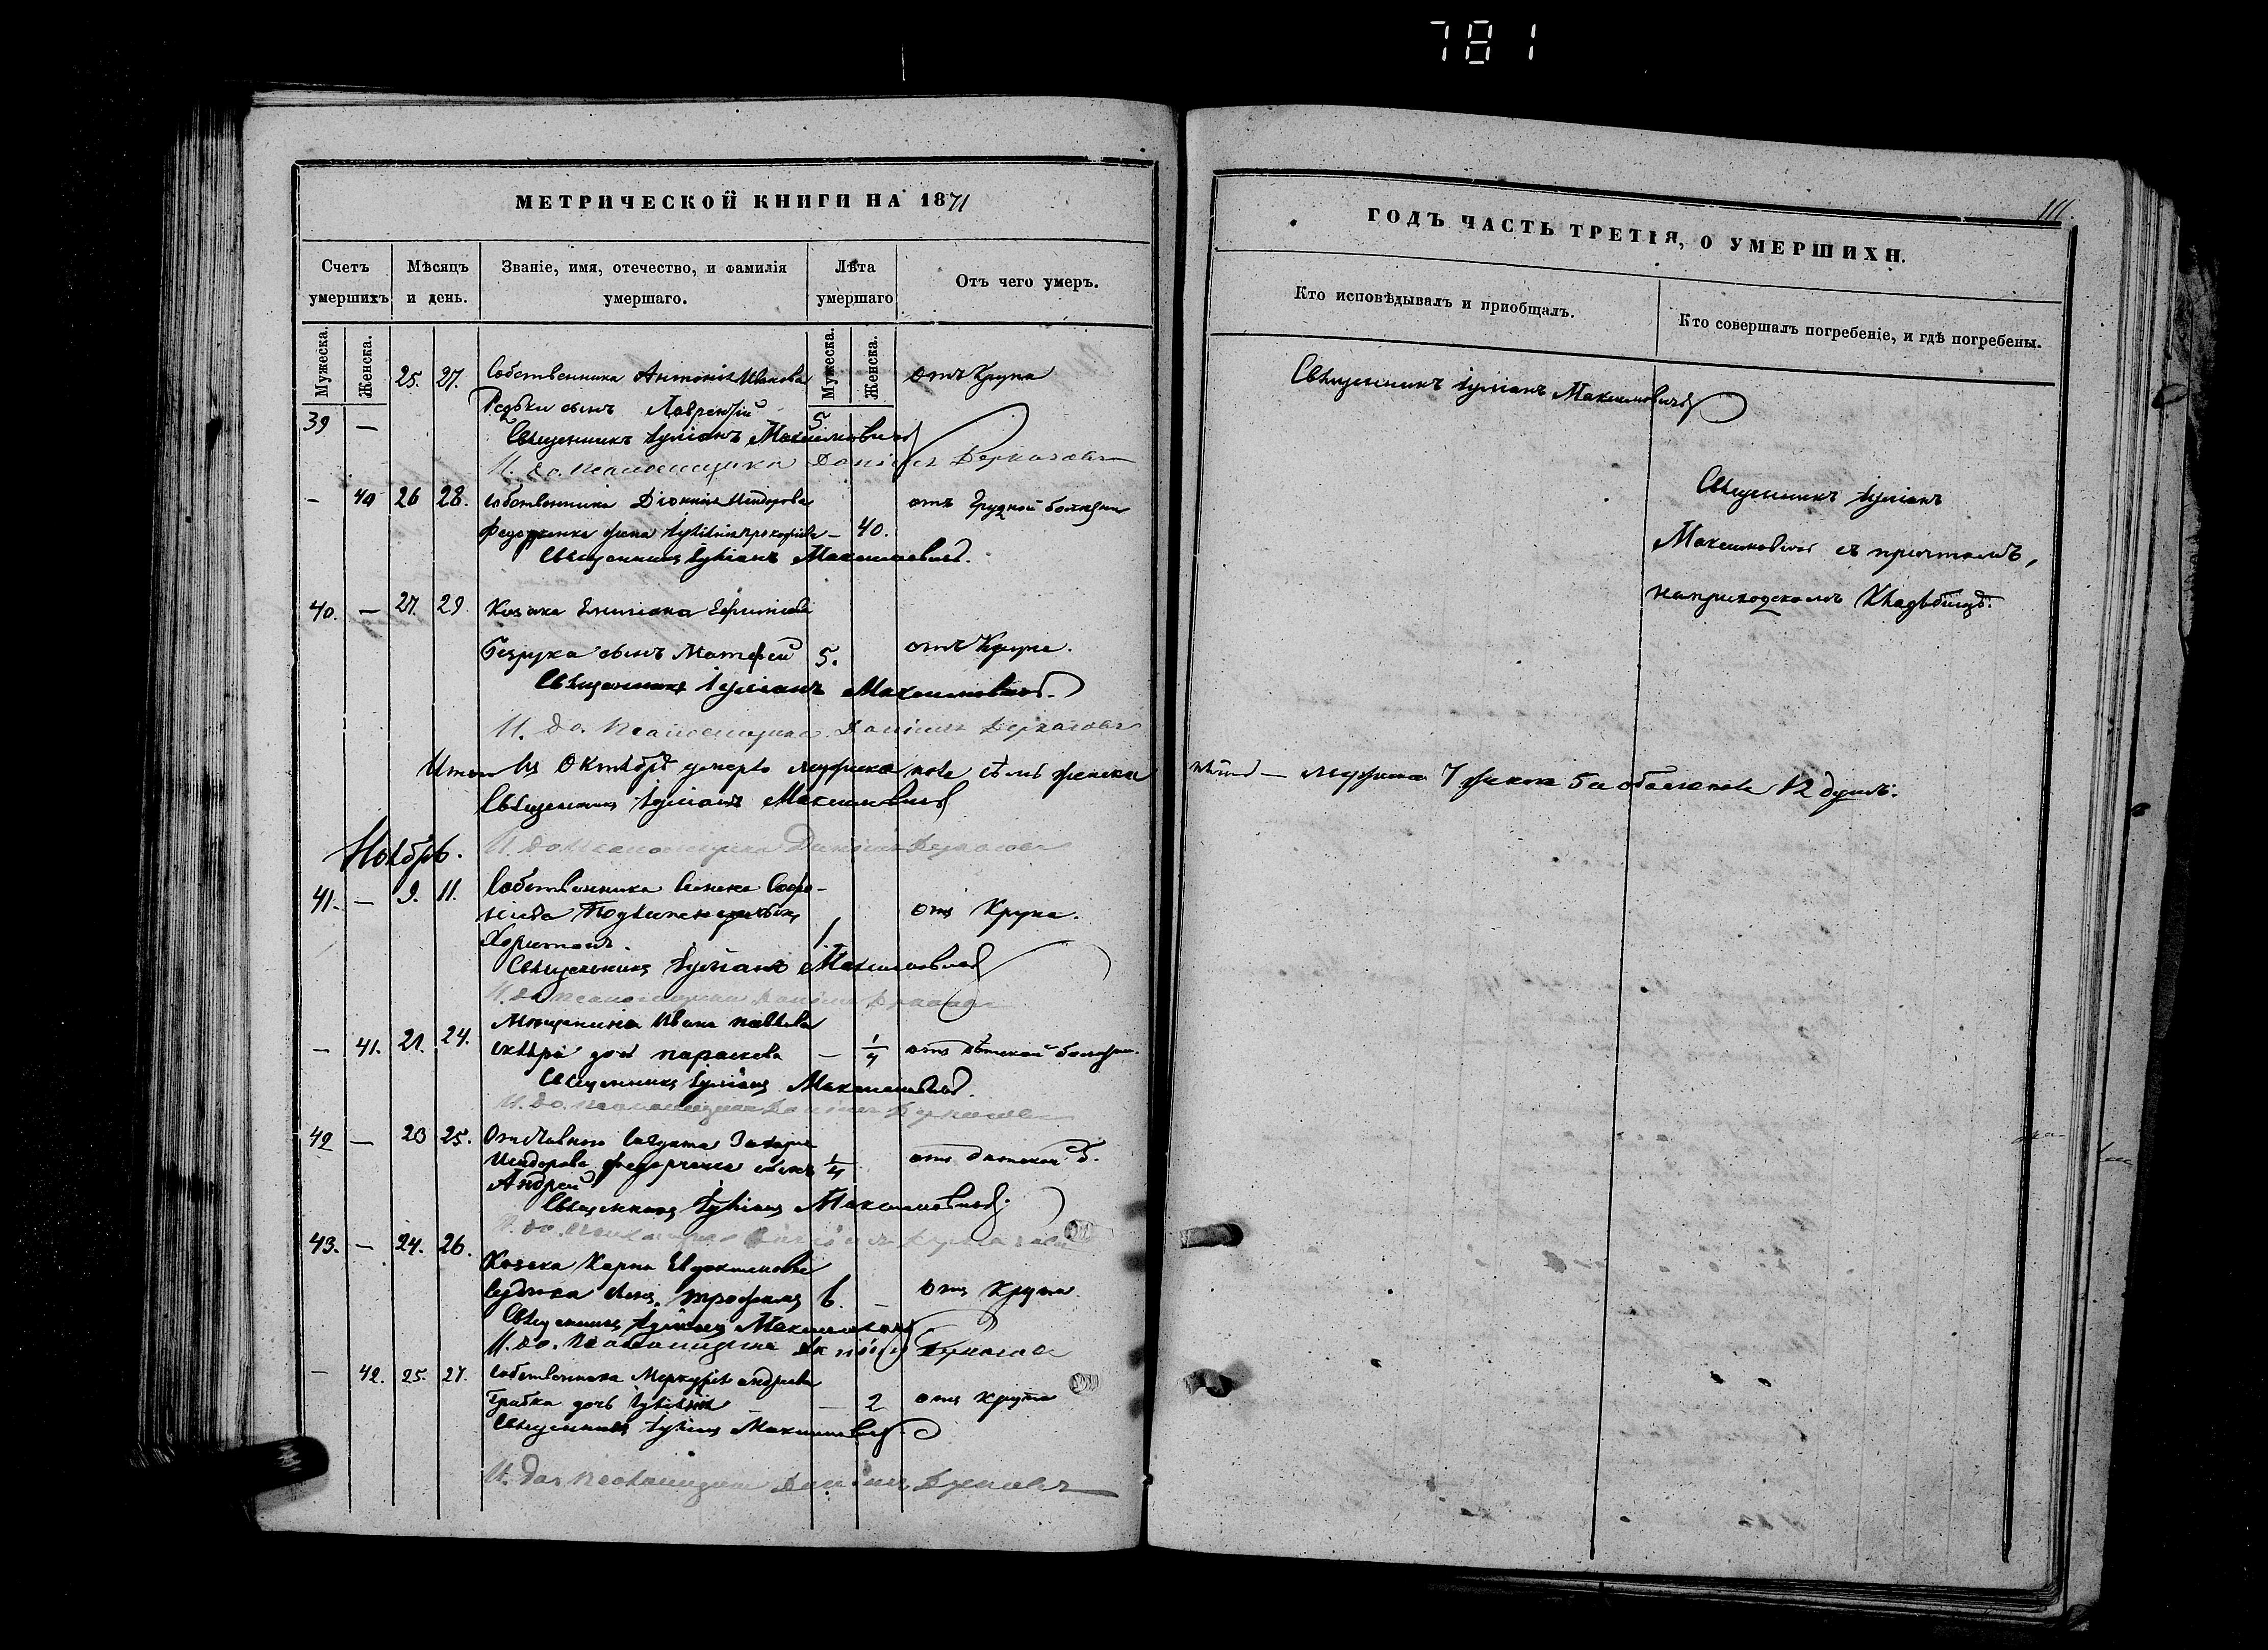 781
111.
МЕТРИЧЕСКОЙ КНИГИ НА 1871
ГОДЪ ЧАСТЬ ТРЕТІЯ, О УМЕРШИХЪ.
Счетъ умершихъ
Мѣсяцъ и день.
Званіе, имя, отечество, и фамилія умершаго.
Лѣта умершаго
Отъ чего умеръ.
Кто исповѣдывалъ и приобщалъ.
Кто совершалъ погребеніе, и гдѣ погребены.
Мужеска.
Женска.
Мужеска.
Женска.
25. 27. Собственника Антонія Иванова отъ Крупа
Редьки сынъ Лаврентій 5
39 —
Священникъ Іуліанъ Максимовичъ
И. до. Псаломщика Даніилъ
Священникъ Іуліанъ Максимовичъ
— 40 26 28. собственника Діонисія Исидорова отъ Грудной болезни
Федорченка жена 40.
Священникъ Іуліанъ Максимовичъ.
Священникъ Іуліанъ
Максимовичъ съ причтомъ,
на приходскомъ Кладбищѣ.
40. — 27. 29. Козака Емиліана
Безрука сынъ Матфей 5. отъ Крупа.
Священникъ Іуліанъ Максимовичъ.
И. до. Псаломщика Даніилъ
Итого въ Октябрѣ умерло мужеска пола семь женска пять — мужеска 7 женска 5 а обоего пола 12 душъ.
Священникъ Іуліанъ Максимовичъ
И. до Псаломщика Даніилъ
Ноябрь.
41. — 9. 11. Собственника
отъ Крупа.
Харитонъ. 1
Священникъ Іуліанъ Максимовичъ
И. до Псаломщика Даніилъ
Мещанина Ивана Павлова
— 41. 21. 24. дочь Параскева — 1/4 отъ дѣтской болезни.
Священникъ Іуліанъ Максимовичъ.
И. до. Псаломщика Даніилъ
42 — 23 25. Отставного Солдата Захарія
Исидорова Федорченка сынъ 1/4 отъ детской б.
Андрей
Священникъ Іуліанъ Максимовичъ.
И. до. Псаломщика Даніилъ
43. — 24. 26.
Козака Карпа Евдокимова
сынъ Трофимъ 6. — отъ Крупа
Священникъ Іуліанъ Максимовичъ
И. до. Псаломщика Даніилъ
— 42. 25. 27. Собственника Меркурія Андреева
Грабка дочь — 2 отъ крупа
Священникъ Іуліанъ Максимовичъ
И. до. Псаломщика Даніилъ